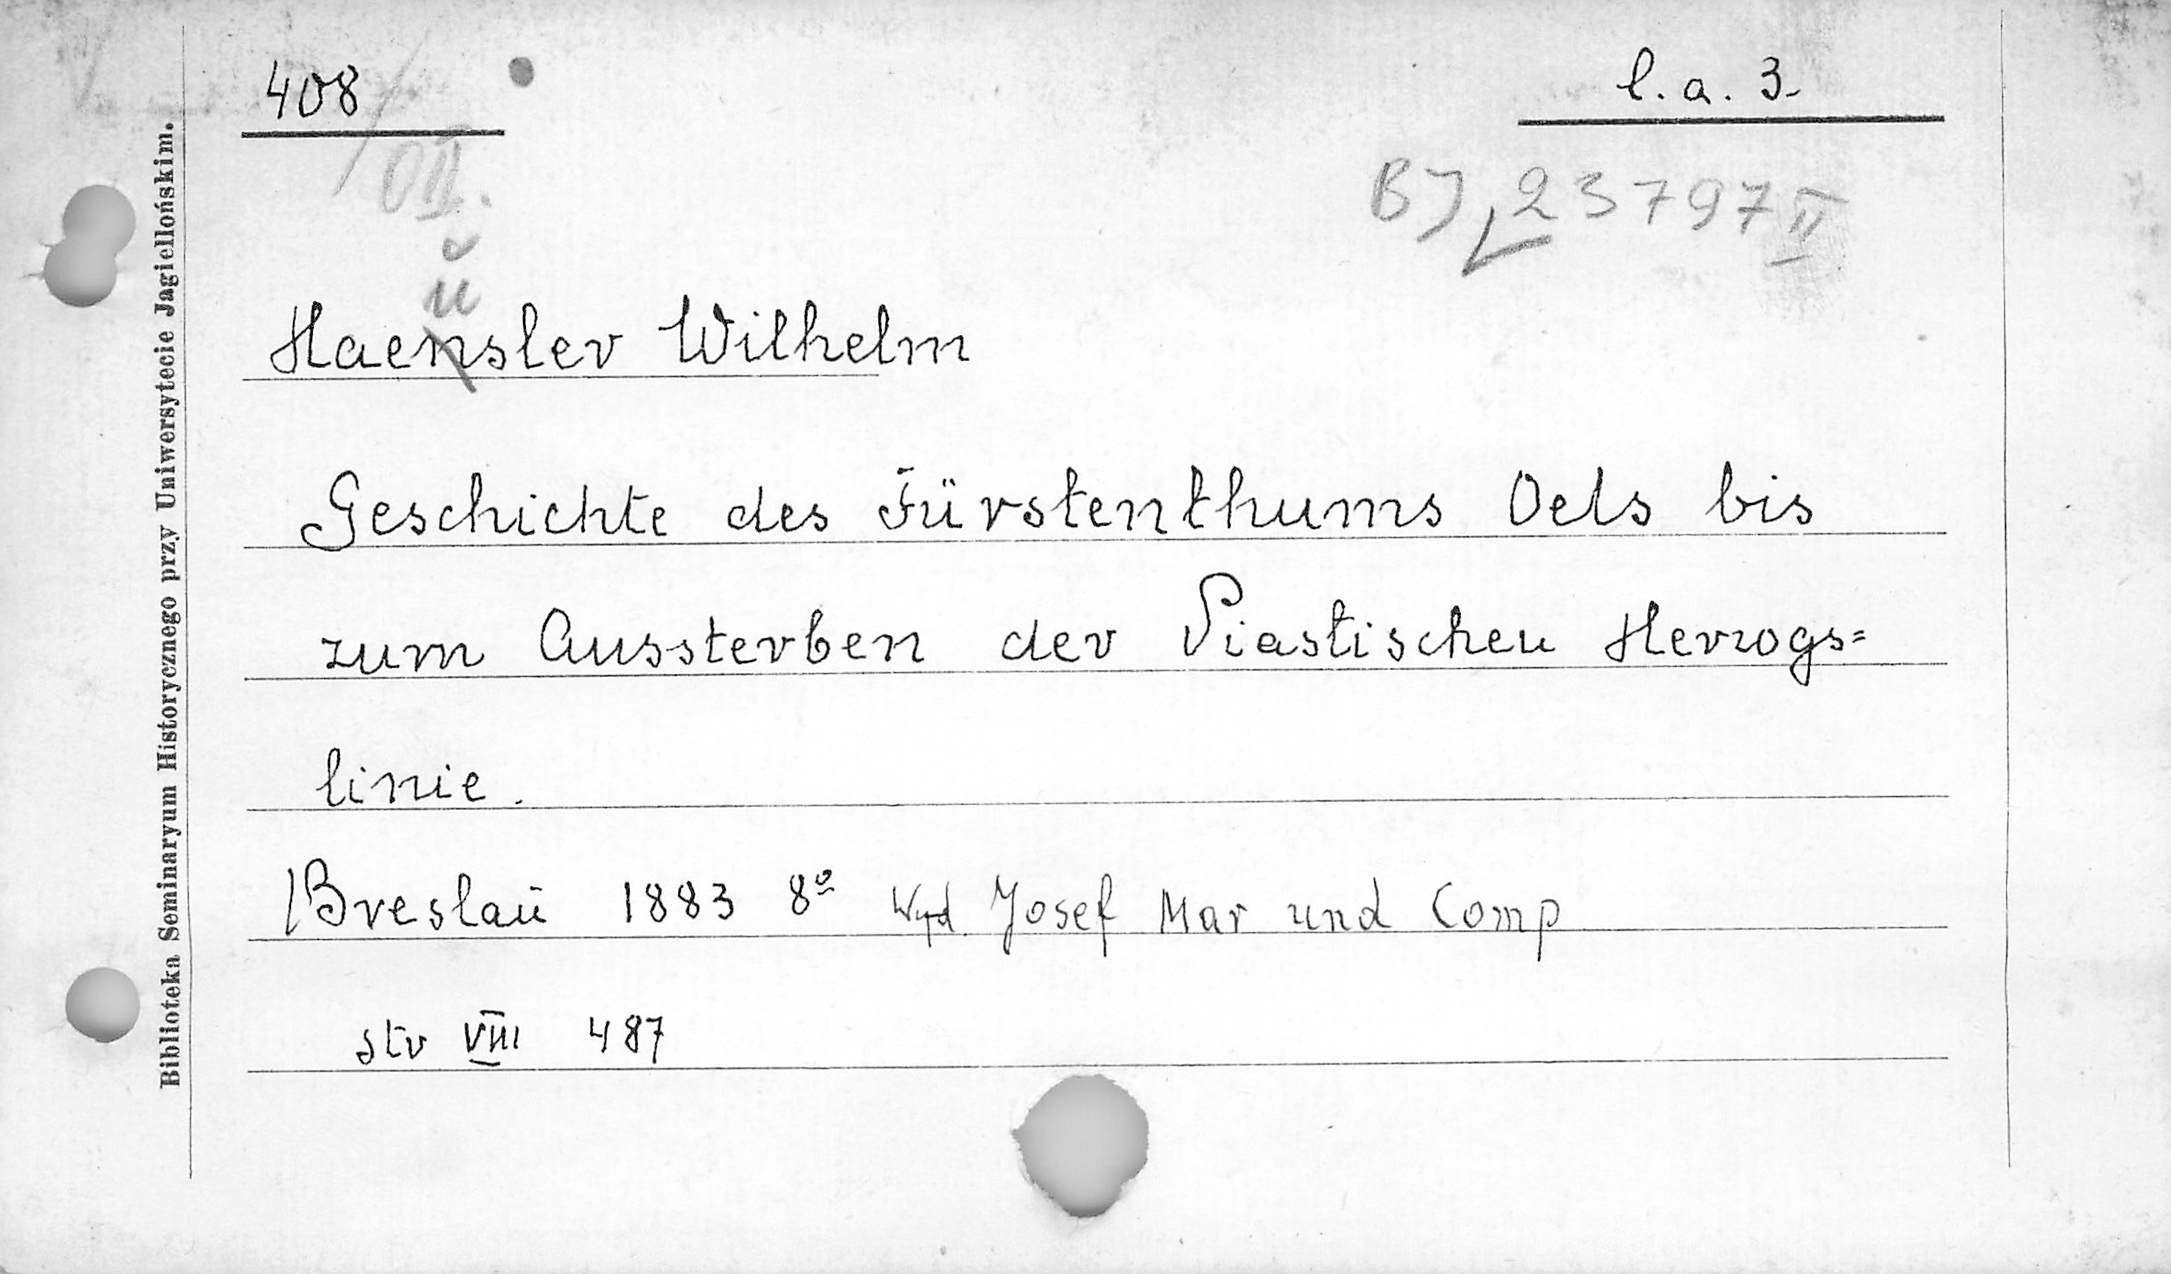 408
l. a. 3.
OII.
BJ 23797 II
ŭ
Haensler Wilhelm
Geschichte des Fürstenthums Oels bis
zum Aussterben der Piastischen Herzogs=
linie.
Breslaŭ 1883 8º Wyd. Josef Mar und Comp
str VIII 487
Biblioteka Seminaryum Historycznego przy Uniwersytecie Jagiellońskim.